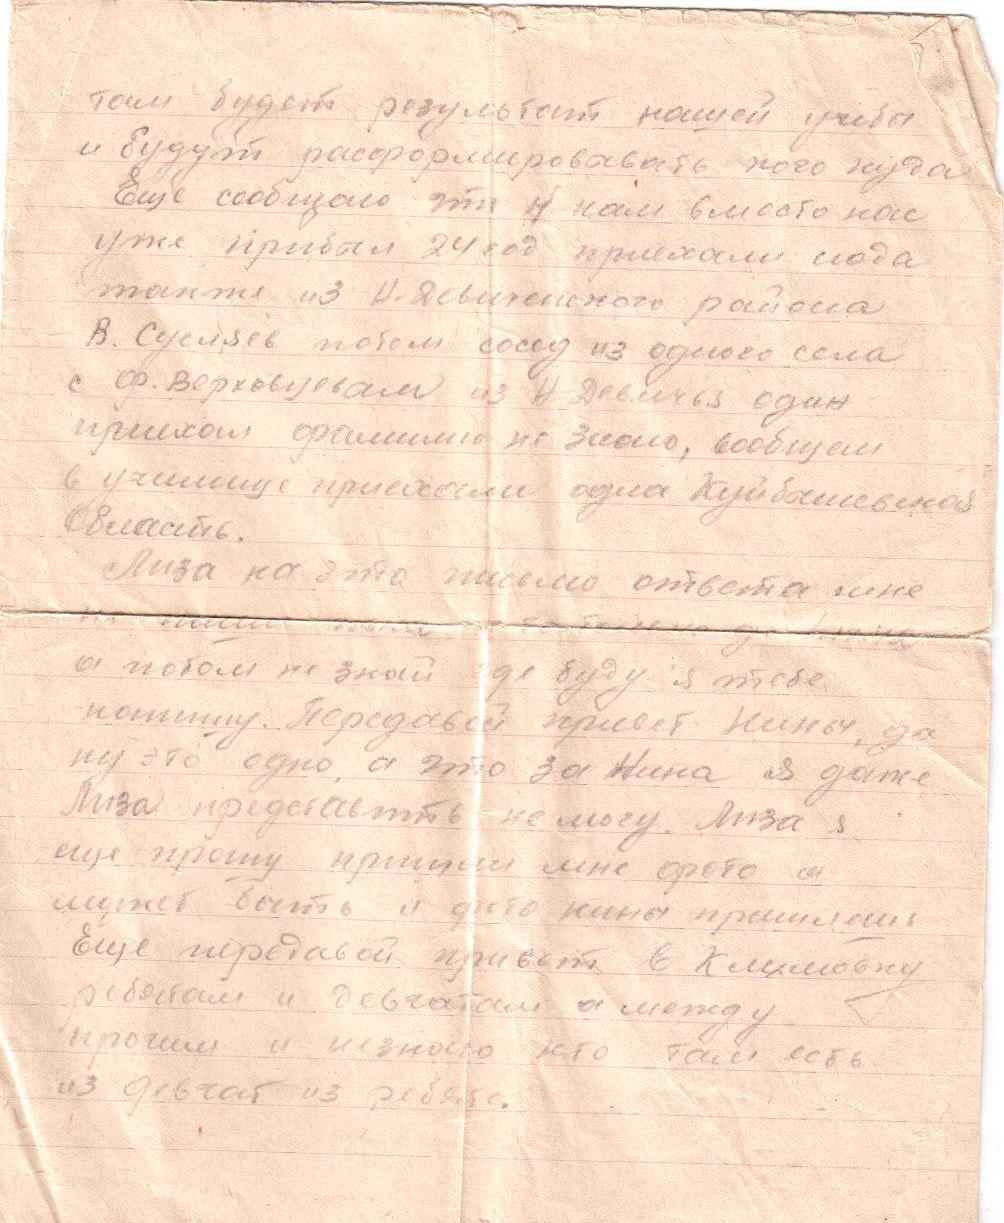 там будет результат нашей учебы
и будут расформировавать кого куда
Еще сообщаю что к нам вместо нас
уже прибыл 24 год приехали сюда
также из Н-Девиченского района
В. Сусляев потом сосед из одного села
с Ф. Верховцевам из Н-Девичья один
приехал фамилию не знаю, вообщем
в училище приехали одна Куйбышевская
Область.
Лиза на это письмо ответа мне
не пиши
а потом не знай где буду я тебе
напишу. Передавай привет Нины, да
ну это одно, а это за Нина я даже
Лиза представить не могу. Лиза я
еще прошу пришли мне фото а
может быть и фото нины пришлешь
Еще передавай привет в Климовку
ребятам и девчатам а между
прочим и незнаю кто там есть
из девчат из ребят.